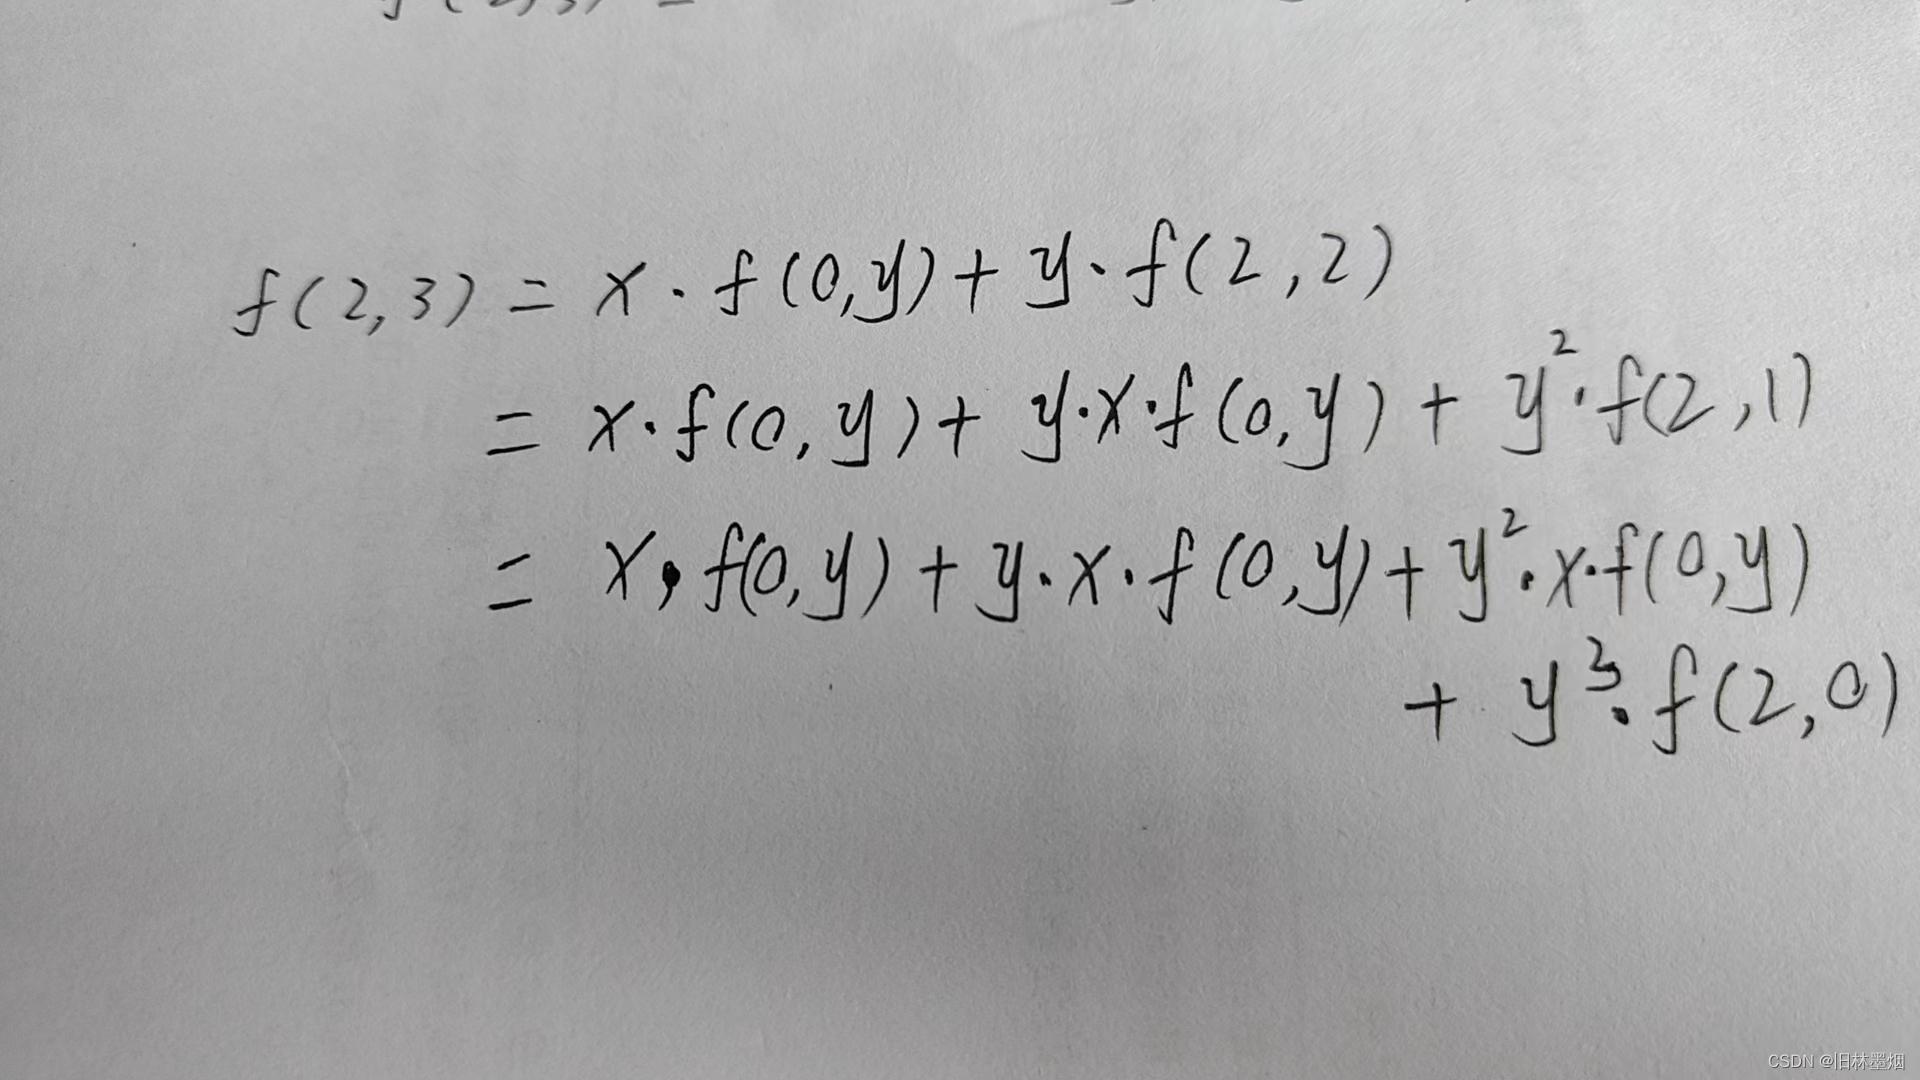 f(2,3) = x · f(0,y) + y · f(2,2)
= x · f(0,y) + y · x · f(0,y) + y² · f(2,1)
= x · f(0,y) + y · x · f(0,y) + y² · x · f(0,y)
+ y³ · f(2,0)
CSDN @旧林墨烟